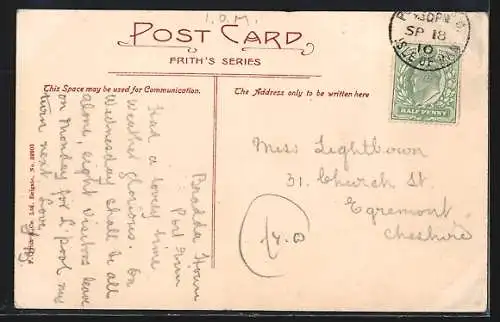 I.O.M.
POST CARD
FRITH'S SERIES
This Space may be used for Communication.
The Address only to be written here
SP 18
10
ISLE OF MAN
HALFPENNY
Bradda
Port Erin
Had a lovely time
Weather glorious. On
Wednesday shall be all
alone, eight visitors leave
on Monday for L'pool
turn next
Love
Miss Lightbown
31. Church St.
Egremont
Cheshire
F. Frith & Co. Ltd. Reigate. No.